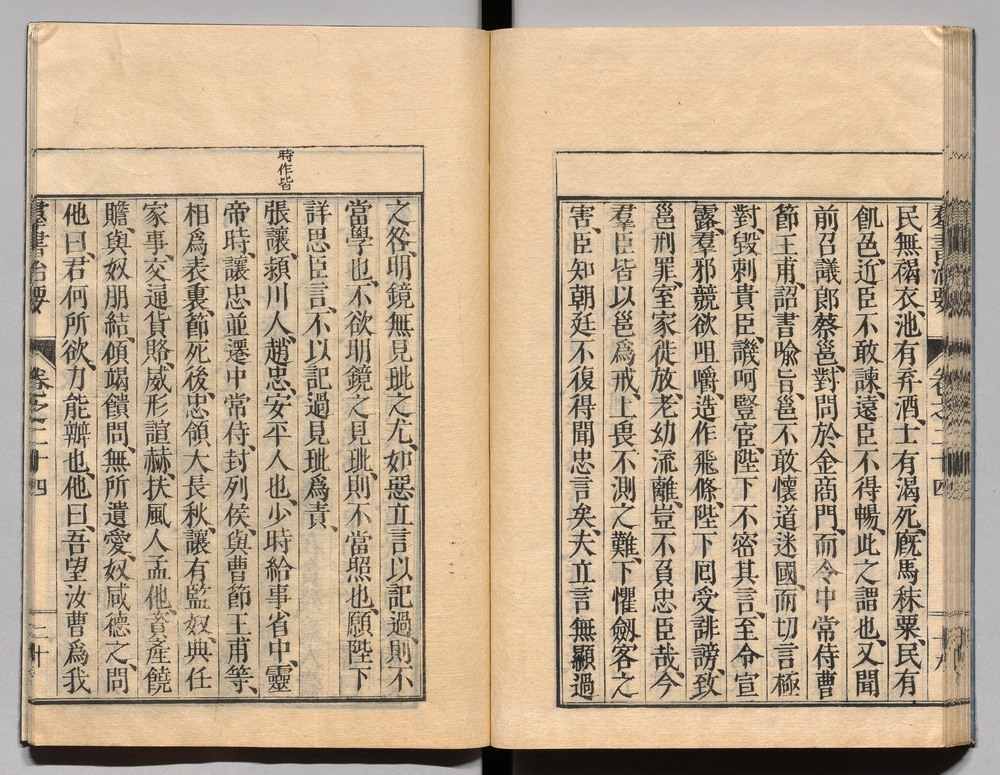 民無褐衣、池有弃酒、士有渴死、廐馬秣粟、民有
飢色、近臣不敢諫、遠臣不得暢、此之謂也、又聞
前召議郎蔡邕、對問於金商門、而令中常侍曹
節王甫、詔書喩旨、邕不敢懷道迷國、而切言極
對、毀刺貴臣、譏呵豎宦、陛下不密其言、至令宣
露、羣邪競欲咀嚼、造作飛條、陛下囘受誹謗、致
邕刑罪、室家徙放、老幼流離、豈不負忠臣哉、今
羣臣皆以邕爲戒、上畏不測之難、下懼劔客之
害、臣知朝廷不復得聞忠言矣、夫立言無顯過
之咎、明鏡無見玼之尤、如惡立言以記過、則不
當學也、不欲明鏡之見玼、則不當照也、願陛下
詳思臣言、不以記過見玼爲責、
時作皆
張讓、潁川人、趙忠、安平人也、少時給事省中、靈
帝時、讓忠並遷中常侍、封列侯、與曹節王甫等、
相爲表裏、節死後、忠領大長秋、讓有監奴、典任
家事、交通貨賂、威形諠赫、扶風人孟他、資產饒
贍、與奴朋結、傾竭饋問、無所遺愛、奴咸德之、問
他曰、君何所欲、力能辦也、他曰、吾望汝曹爲我
羣書治要 卷之二十四 二十